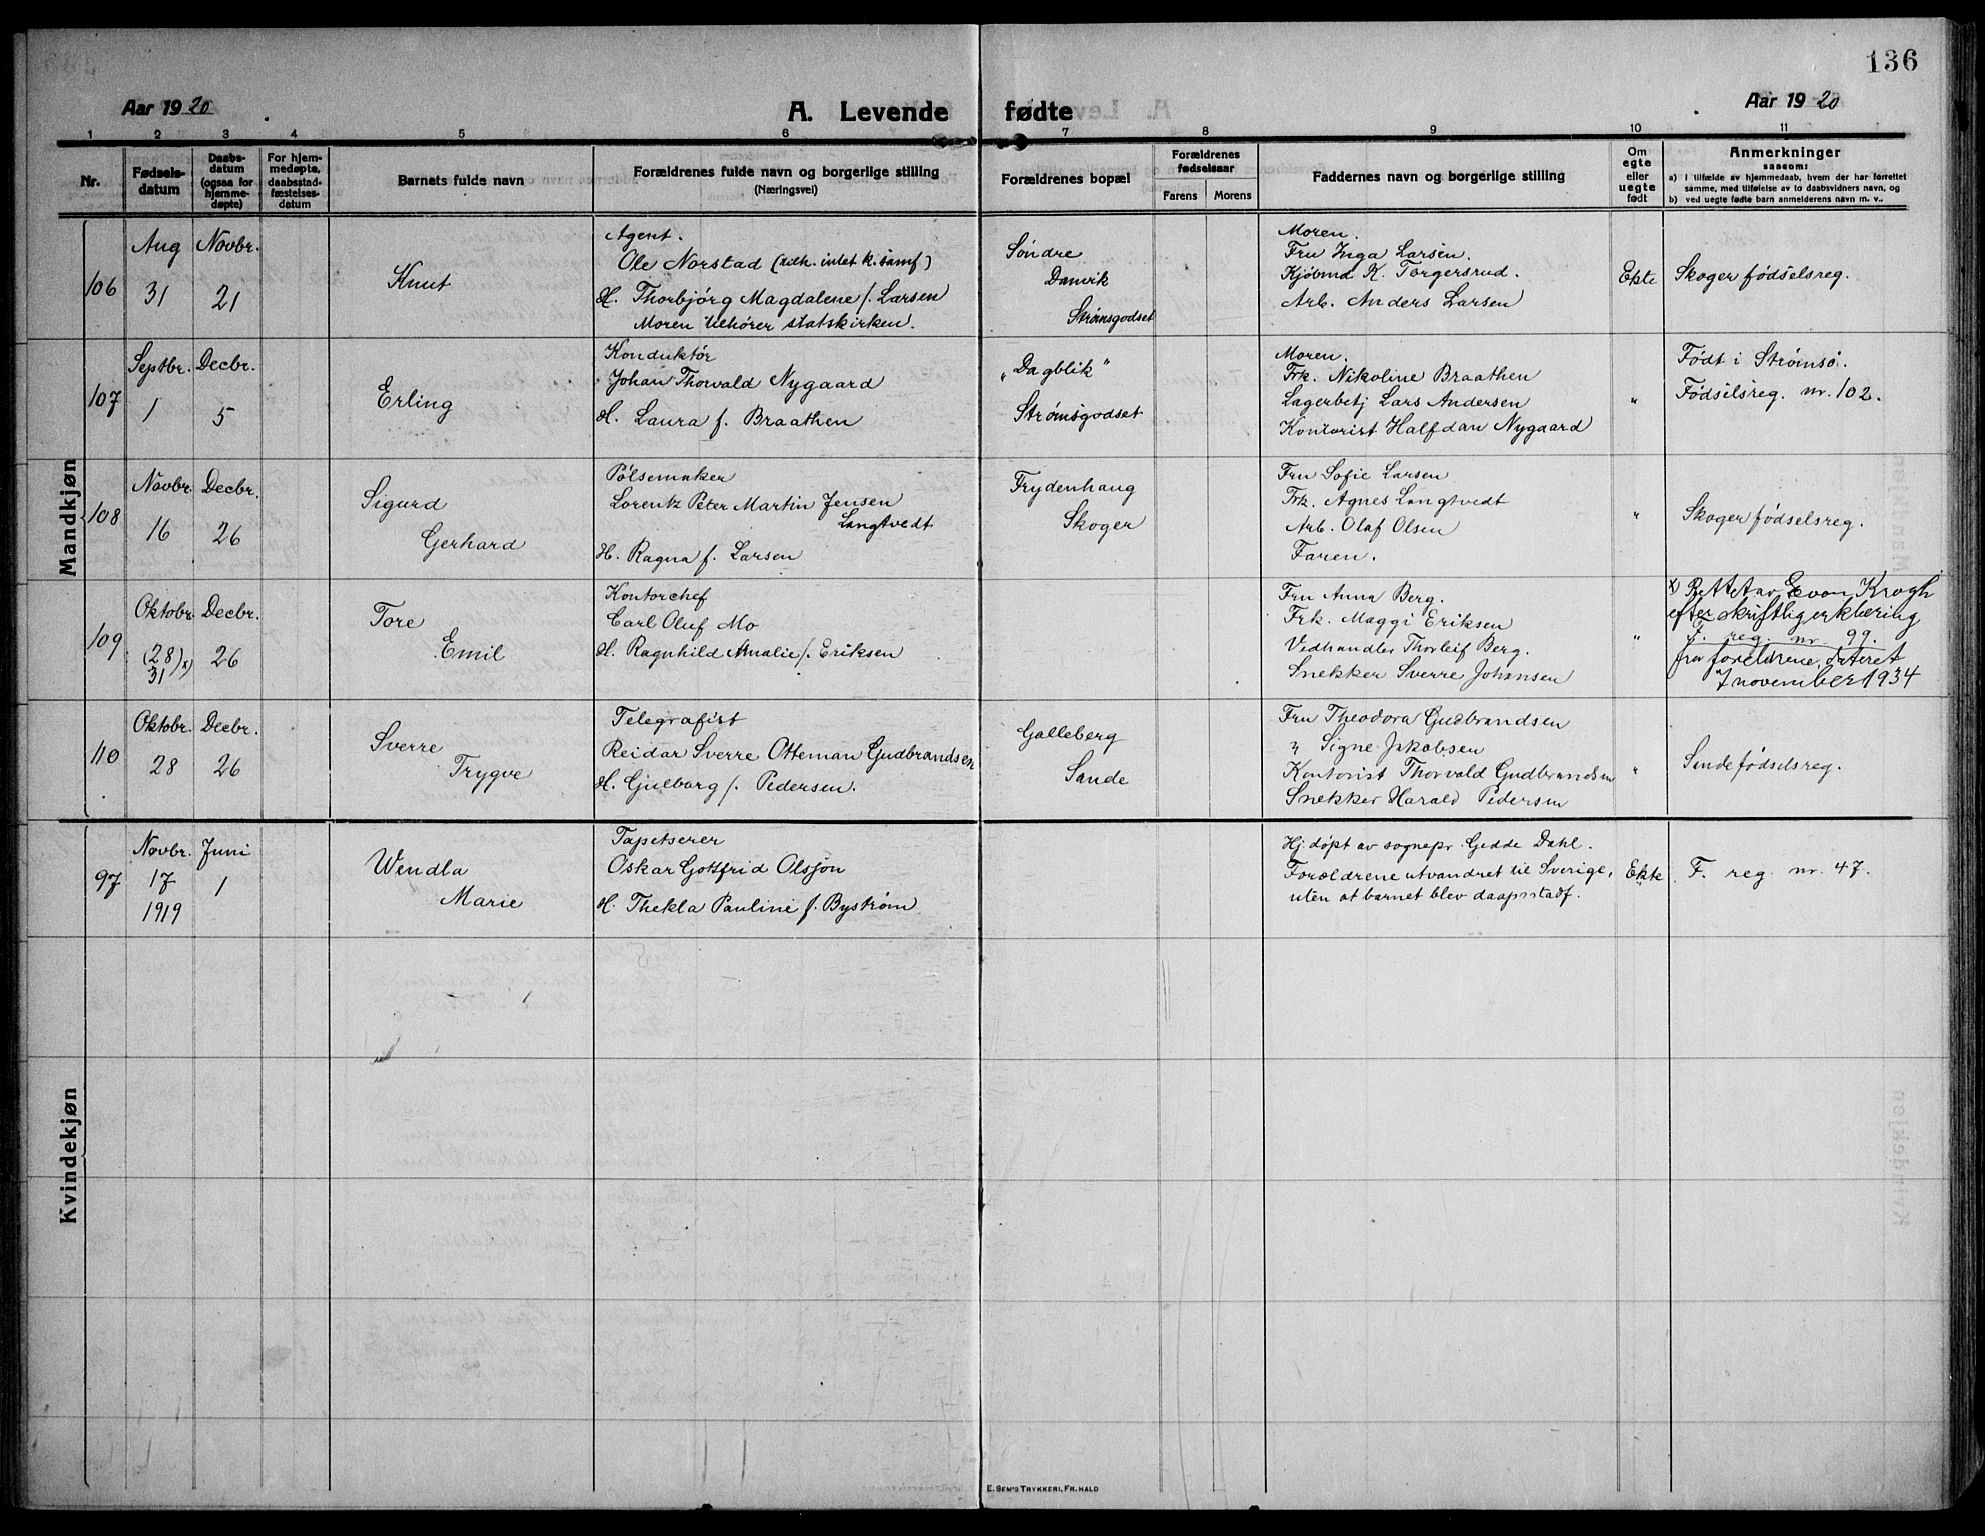 136
Aar 1920
A. Levende fødte
Aar 1920
1 2 3 4 5 6 7 8 9 10 11
Nr.
Fødsels-
datum
Daabs-
datum
(ogsaa for
hjemme-
døpte)
For hjem-
medøpte,
daabsstad-
fæstelses-
datum
Barnets fulde navn
Forældrenes fulde navn og borgerlige stilling
(Næringsvei)
Forældrenes bopæl
Forældrenes
fødselsaar
Farens Morens
Faddernes navn og borgerlige stilling
Om
egte
eller
uegte
født
Anmerkninger
saasom:
a) I tilfælde av hjemmedaab, hvem der har forrettet
samme, med tilføielse av to daabsvidners navn, og
b) ved uegte fødte barn anmelderens navn m. v..
Mandkjøn
106
Aug
31
Novbr.
21
Knut
Agent.
Ole Norstad (tilh. intet k. samf)
H. Thorbjörg Magdalene f. Larsen
Moren tilhører statskirken.
Søndre
Danvik
Strømsgodset
Moren.
Fru Inga Larsen.
Kjøbmd K. Torgersrud.
Arb. Anders Larsen
Ekte
Skoger fødselsreg.
107
Septbr.
1
Decbr.
5
Erling
Konduktør
Johan Thorvald Nygaard
H. Laura f. Braathen
„Dagblik"
Strømsgodset
Moren.
Frk. Nikoline Braathen
Lagerbetj Lars Andersen
Kontorist Halfdan Nygaard
"
Født i Strømsö.
Fødselsreg. nr. 102.
108
Novbr.
16
Decbr.
26
Sigurd
Gerhard
Pølsemaker
Lorentz Peter Martin Jensen
Langtvedt
H. Ragna f. Larsen
Frydenhaug
Skoger
Fru Sofie Larsen
Frk. Agnes Langtvedt
Arb. Olaf Olsen
Faren.
"
Skoger fødselsreg.
109
Oktobr.
(28)x)
31
Decbr.
26
Tore
Emil
Kontorchef
Carl Oluf Mo
H. Ragnhild Amalie f. Eriksen
Fru Anna Berg.
Frk. Maggi Eriksen
Vedhandler Thorleif Berg.
Snekker Sverre Johansen
"
x) Rettet av E von Krogh
efter skriftlig erklæring
F. reg. nr. 99.
fra foreldrene, dateret
7 november 1934
110
Oktobr.
28
Decbr.
26
Sverre
Trygve
Telegrafist
Reidar Sverre Otteman Gudbrandsen
H. Gjulborg f. Pedersen.
Galleberg
Sande
Fru Theodora Gudbrandsen
" Signe Jakobsen
Kontorist Thorvald Gudbrandsen
Snekker Harald Pedersen
"
Sande fødselsreg.
Kvindekjøn
97
Novbr.
17
1919
Juni
1
Wendla
Marie
Tapetserer
Oskar Gottfrid Olsjön
H. Thekla Pauline f. Byström
Hj. døpt av sognepr. Gedde Dahl.
Forældrene utvandret til Sverige,
uten at barnet blev daapsstadf.
Ekte
F. reg. nr. 47.
E. Sem's Trykkeri, Fr.hald